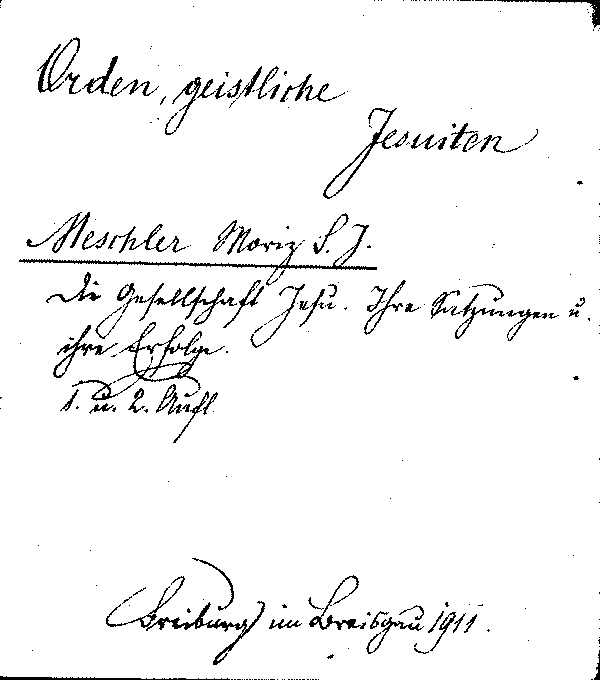 Orden, geistliche
Jesuiten
Meschler Moriz S. J.
Die Gesellschaft Jesu. Ihre Satzungen u.
ihre Erfolge.
1. u. 2. Aufl.
Freiburg im Breisgau 1911.